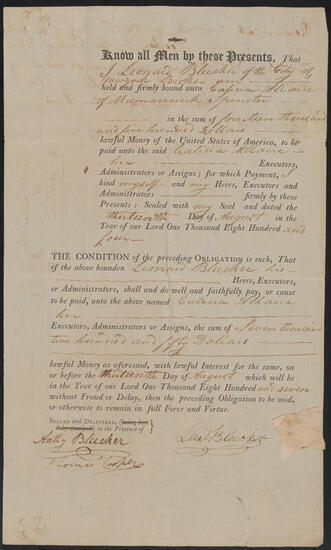 Know all Men by these Presents, That
I Leonard Bleecker of the City of
Newyork Broker am
held and firmly bound unto Calicia Allaire
of Mamaroneck Spinster
in the sum of fourteen thousand
and five hundred Dollars
lawful Money of the United States of America, to be
paid unto the said Calicia Allaire
her Executors,
Administrators or Assigns; for which Payment, I
bind myself and my Heirs, Executors and
Administrators firmly by these
Presents: Sealed with my Seal and dated the
thirteenth Day of August in the
Year of our Lord One Thousand Eight Hundred and
four
THE CONDITION of the preceding OBLIGATION is such, That
if the above bounden Leonard Bleecker his
Heirs, Executors,
or Administrators, shall and do well and faithfully pay, or cause
to be paid, unto the above named Calicia Allaire
her
Executors, Administrators or Assigns, the sum of Seven thousand
two hundred and fifty Dollars
lawful Money as aforesaid, with lawful Interest for the same, on
or before the thirteenth Day of August which will be
in the Year of our Lord One Thousand Eight Hundred and seven
without Fraud or Delay, then the preceding Obligation to be void,
or otherwise to remain in full Force and Virtue.
SEALED and DELIVERED, (being first
duly stamped) in the Presence of }
Anthy Bleecker
Leod Bleecker
Thomas Cooper